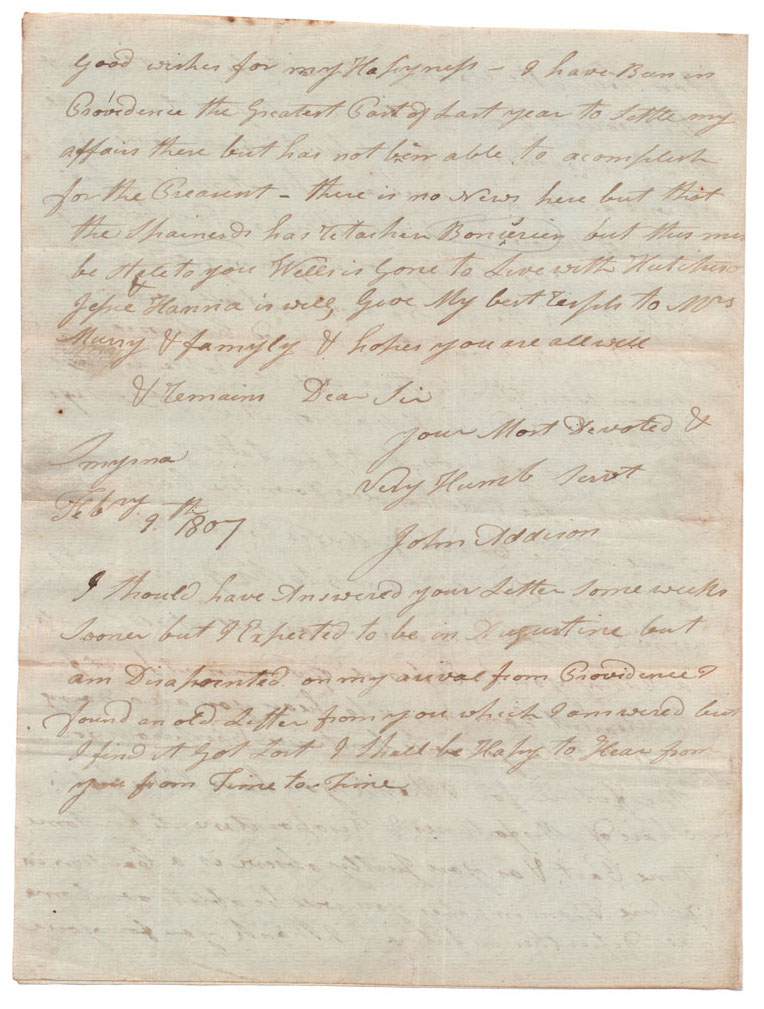 Good wishes for my Hapyness - I have Been in
Providence the Greatest Part of Last year to Settle my
affairs there but has not been able to acomplish
for the Preasent - there is no News here but that
the Spainerds has retaken but this
be Stale to you Wells is Gone to Live with
Jesse & Hanna is well, Give My best respts to Mrs
Murry & famyly & hopes you are all well
& remains Dear Sir
your Most Devoted &
Very Humb Servt
John Addison
Smyrna
Febry 9th 1807
I Should have Answered your Letter Some weeks
Sooner but I Expected to be in Augustine but
am Disapointed on my arival from Providence I
found an old Letter from you which I answered but
I find it Got Lost I Shall be Hapy to Hear from
you from Time to Time